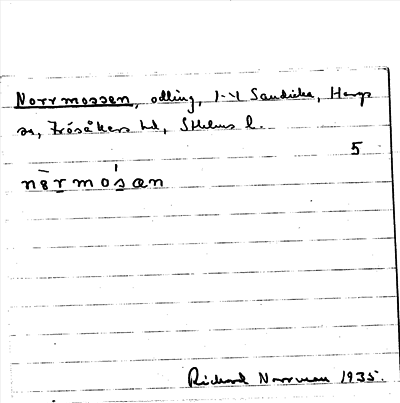 Norrmossen, odling, 1-4 Sandika, Hargs
sn, Frösåkers hd, Sthlms l.
5
nɵ̄rmósæn
Richard Norrman 1935.